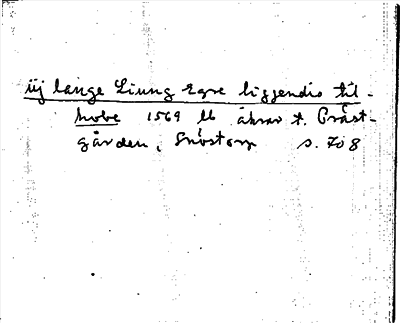 iij lange Liung Egre liggendis til-
hobe 1569 lb åkrar t. Präst-
gården, Snöstorp s. 708